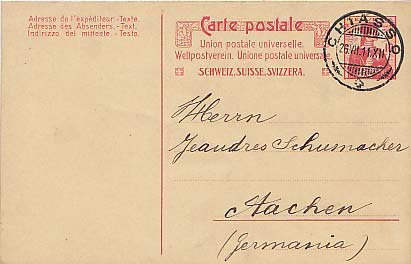 Adresse de l'expéditeur.-Texte.
Adresse des Absenders.-Text.
Indirizzo del mittente.-Testo.
Carte postale
Union postale universelle.
Weltpostverein. Unione postale universale.
SCHWEIZ.SUISSE.SVIZZERA.
CHIASSO
26.III.11.XII
Herrn
Jeandres Schumacher
Aachen
(Germania)